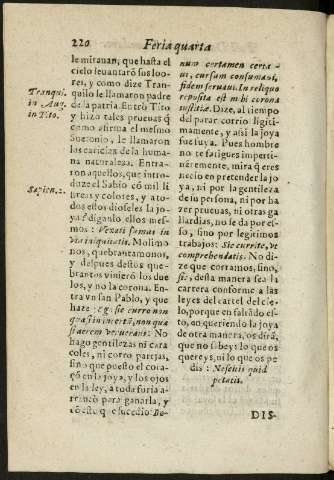 220 Feria quarta
le mirauan, que hasta el
cielo leuantarō sus loo-
res, y como dize Tran-
quilo le llamaron padre
de la patria. Entrò Tito
y hizo tales prueuas q̃
como afirma el mesmo
Suetonio, le llamaron
las caricias de la huma-
na naturaleza. Entra-
ron aquellos, que intro-
duze el Sabio cō mil li
breas y colores, y a to-
dos estos dioseles la jo-
ya? diganlo ellos mes-
mos: Vexati sumus in
via iniquitatis. Molimo
nos, quebrantamonos,
y despues destos que-
brantos vinierō los due
los, y no la corona. En
tra vn san Pablo, y que
haze? Ego sic curro non
quasi in incertū, non qua
si aerem verberans. No
hago gentilezas ni cara
coles, ni corro parejas,
sino que puesto el cora-
çō en la joya, y los ojos
en la ley, a toda furia a-
rranco para ganarla, y
cō esto que sucedio? Bo-
Tranqui.
in Aug.
in Tito.
Sapien. 5.
num certamen certa-
ui, cursum consumaui,
fidem seruaui. In reliquo
reposita est mihi corona
iustitiæ. Dize, al tiempo
del parar corrio ligiti-
mamente, y assi la joya
fue suya. Pues hombre
no te fatigues imperti-
nēremente, mira q̃ eres
necio en pretender la jo
ya, ni por la gentileza
de tu persona, ni por ha
zer prueuas, ni otras ga
llardias, no se da por es-
so, sino por legitimos
trabajos: Sic currite, vt
comprehendatis. No di-
ze que corramos, sino,
sic, desta manera sea la
carrera conforme a las
leyes del cartel del cie-
lo, porque en faltādo es-
to, en queriendo la joya
de otra manera, os dirà,
que no sabeys lo que os
quereys, ni lo que os pe
dis: Nescitis quid
petatis.
DIS-